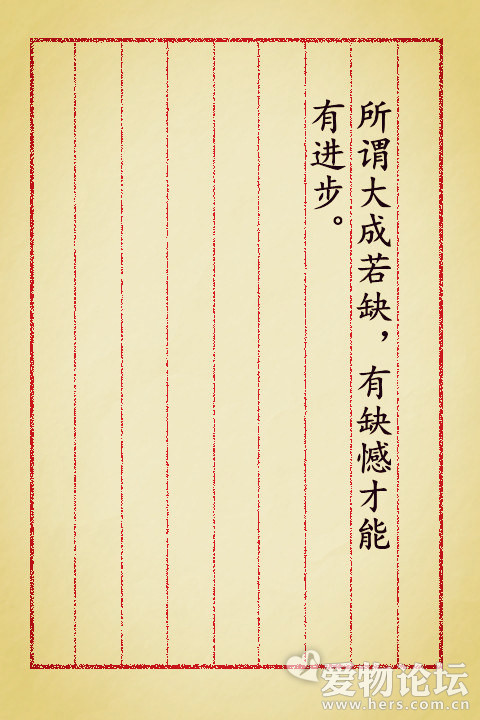 所谓大成若缺，有缺憾才能
有进步。
爱物论坛
www.hers.com.cn